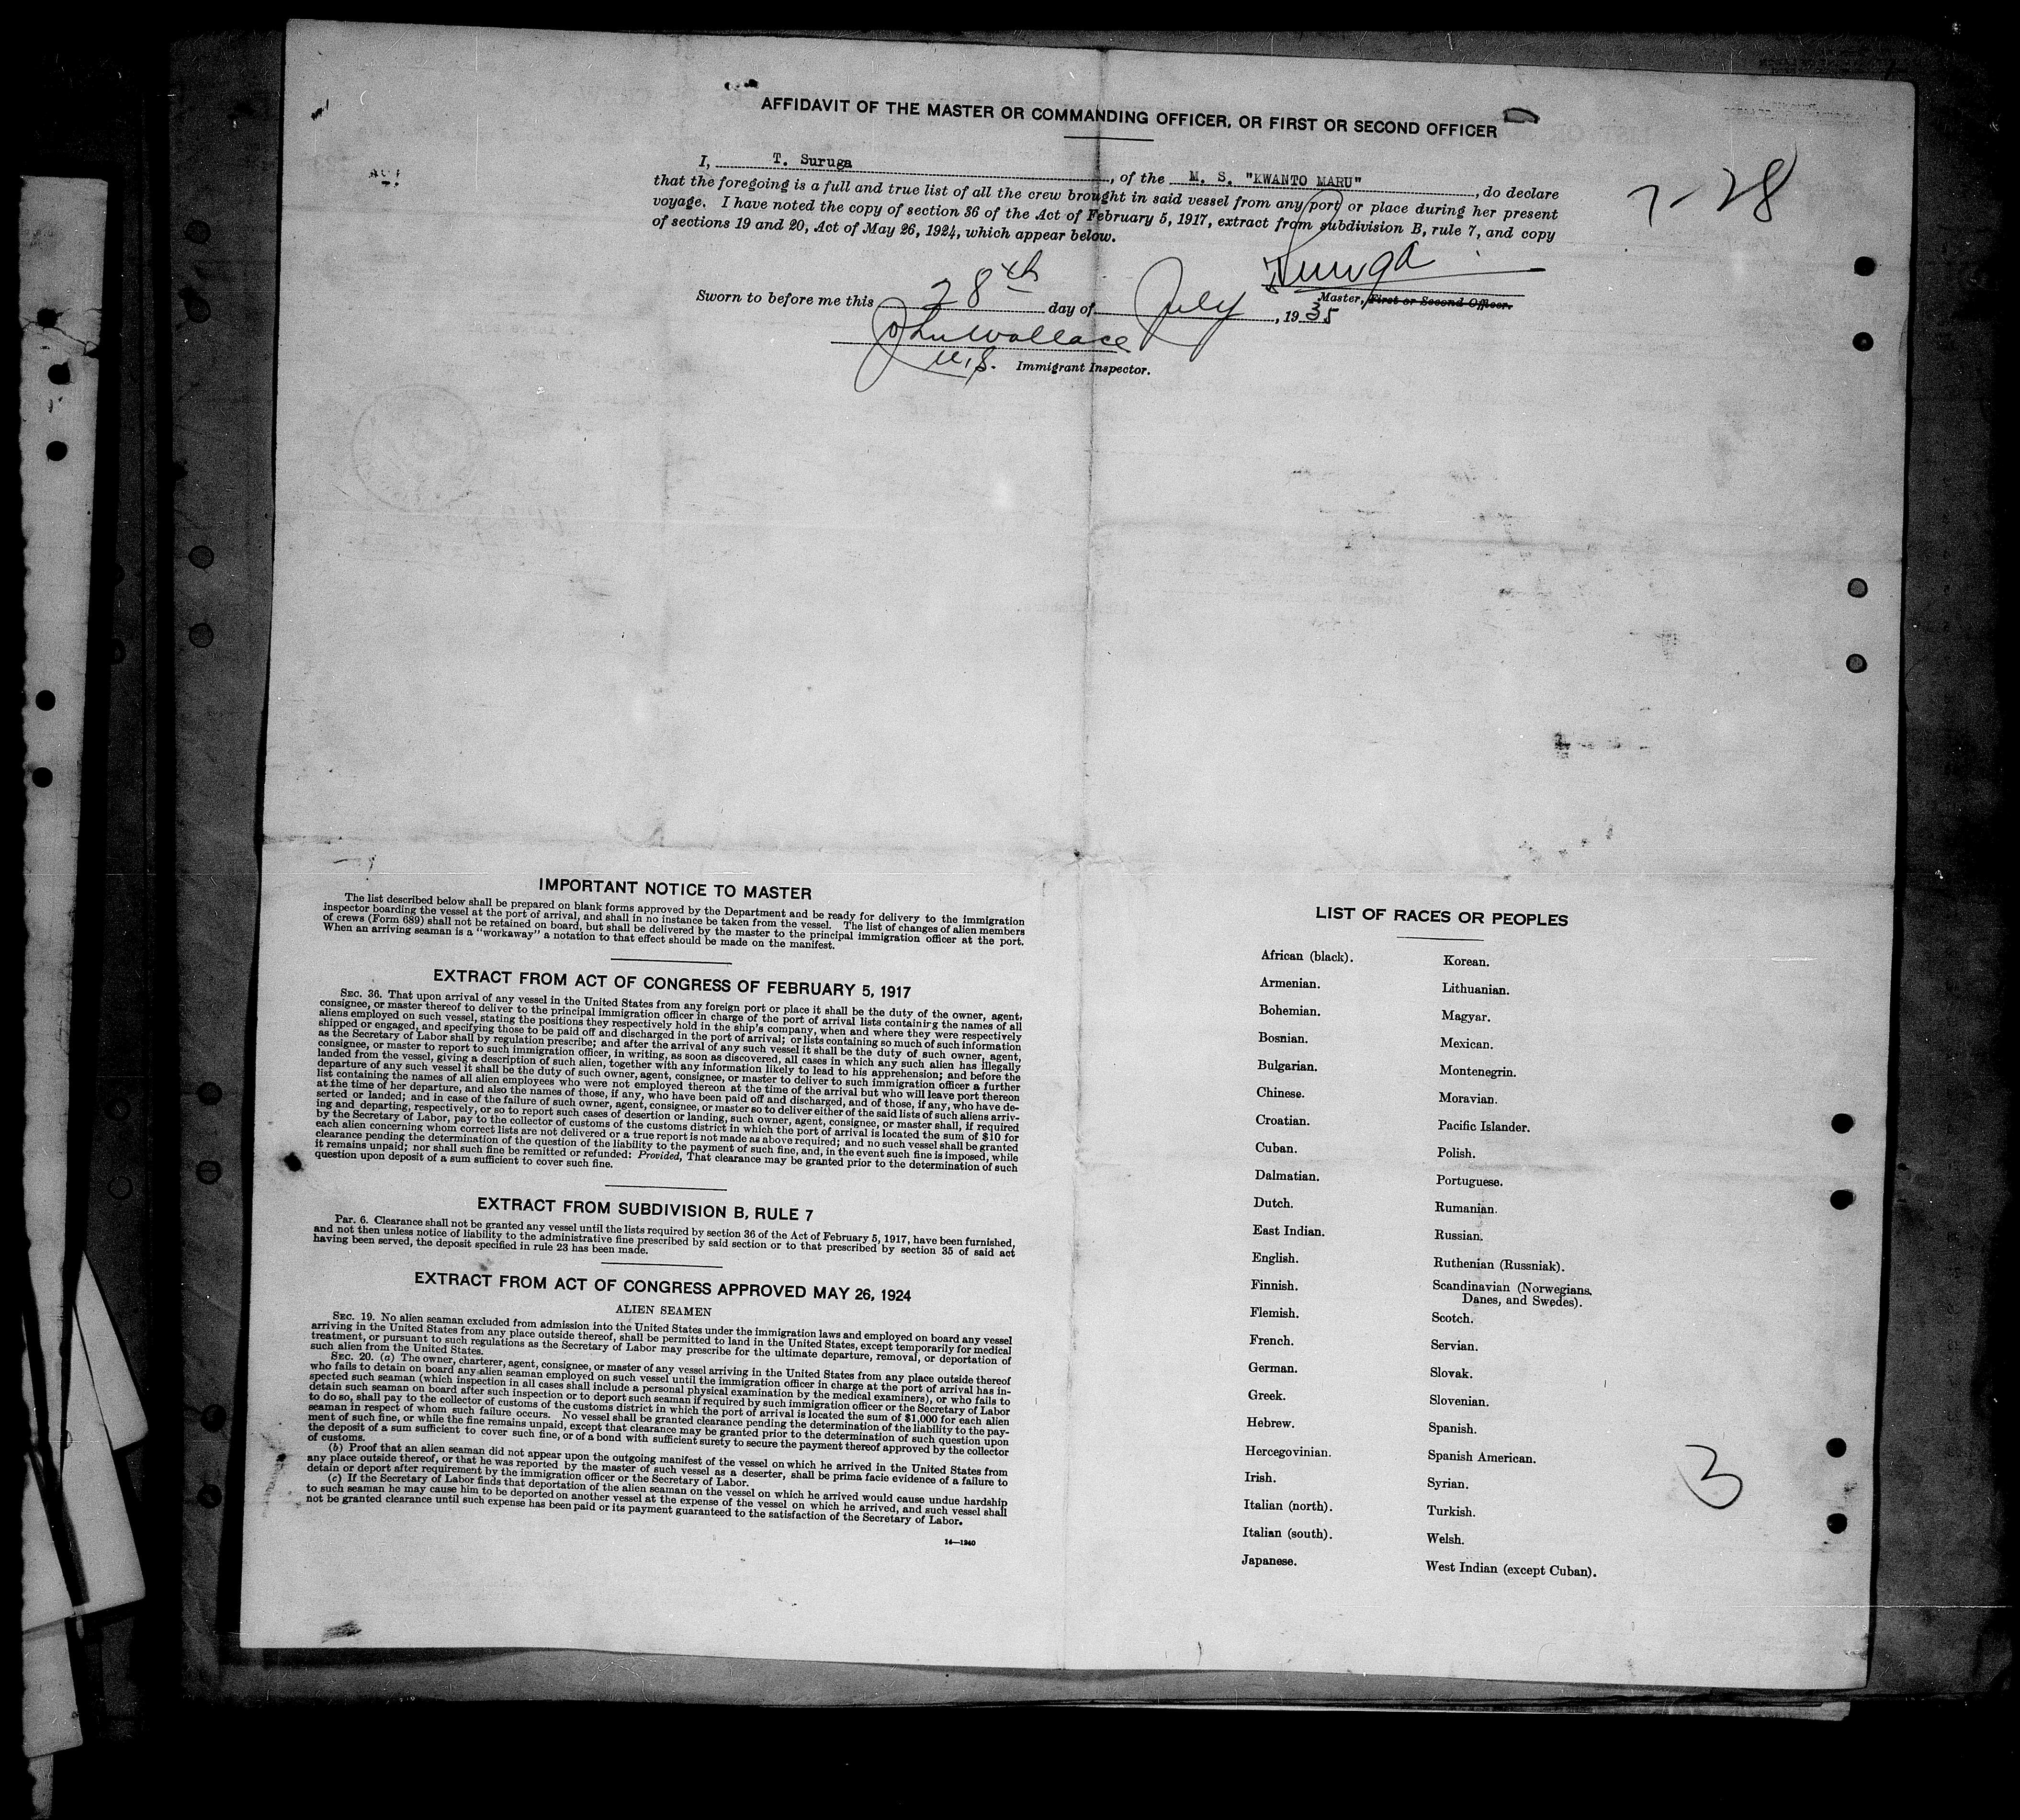 AFFIDAVIT OF THE MASTER OR COMMANDING OFFICER, OR FIRST OR SECOND OFFICER
I, T. Suruga, of the M. S. "KWANTO MARU", do declare
that the foregoing is a full and true list of all the crew brought in said vessel from any port or place during her present
voyage. I have noted the copy of section 36 of the Act of February 5, 1917, extract from subdivision B, rule 7, and copy
of sections 19 and 20, Act of May 26, 1924, which appear below.
7-28
Suruga
Master, First or Second Officer.
Sworn to before me this 28th day of July, 1935
John Wallace
U.S. Immigrant Inspector.
IMPORTANT NOTICE TO MASTER
The list described below shall be prepared on blank forms approved by the Department and be ready for delivery to the immigration
inspector boarding the vessel at the port of arrival, and shall in no instance be taken from the vessel. The list of changes of alien members
of crews (Form 689) shall not be retained on board, but shall be delivered by the master to the principal immigration officer at the port.
When an arriving seaman is a "workaway" a notation to that effect should be made on the manifest.
EXTRACT FROM ACT OF CONGRESS OF FEBRUARY 5, 1917
SEC. 36. That upon arrival of any vessel in the United States from any foreign port or place it shall be the duty of the owner, agent,
consignee, or master thereof to deliver to the principal immigration officer in charge of the port of arrival lists containing the names of all
aliens employed on such vessel, stating the positions they respectively hold in the ship's company, when and where they were respectively
shipped or engaged, and specifying those to be paid off and discharged in the port of arrival; or lists containing so much of such information
as the Secretary of Labor shall by regulation prescribe; and after the arrival of any such vessel it shall be the duty of such owner, agent,
consignee, or master to report to such immigration officer, in writing, as soon as discovered, all cases in which any such alien has illegally
landed from the vessel, giving a description of such alien, together with any information likely to lead to his apprehension; and before the
departure of any such vessel it shall be the duty of such owner, agent, consignee, or master to deliver to such immigration officer a further
list containing the names of all alien employees who were not employed thereon at the time of the arrival but who will leave port thereon
at the time of her departure, and also the names of those, if any, who have been paid off and discharged, and of those, if any, who have de-
serted or landed; and in case of the failure of such owner, agent, consignee, or master so to deliver either of the said lists of such aliens arriv-
ing and departing, respectively, or so to report such cases of desertion or landing, such owner, agent, consignee, or master shall, if required
by the Secretary of Labor, pay to the collector of customs of the customs district in which the port of arrival is located the sum of $10 for
each alien concerning whom correct lists are not delivered or a true report is not made as above required; and no such vessel shall be granted
clearance pending the determination of the question of the liability to the payment of such fine, and, in the event such fine is imposed, while
it remains unpaid; nor shall such fine be remitted or refunded: Provided, That clearance may be granted prior to the determination of such
question upon deposit of a sum sufficient to cover such fine.
EXTRACT FROM SUBDIVISION B, RULE 7
Par. 6. Clearance shall not be granted any vessel until the lists required by section 36 of the Act of February 5, 1917, have been furnished,
and not then unless notice of liability to the administrative fine prescribed by said section or to that prescribed by section 35 of said act
having been served, the deposit specified in rule 23 has been made.
EXTRACT FROM ACT OF CONGRESS APPROVED MAY 26, 1924
ALIEN SEAMEN
SEC. 19. No alien seaman excluded from admission into the United States under the immigration laws and employed on board any vessel
arriving in the United States from any place outside thereof, shall be permitted to land in the United States, except temporarily for medical
treatment, or pursuant to such regulations as the Secretary of Labor may prescribe for the ultimate departure, removal, or deportation of
such alien from the United States.
SEC. 20. (a) The owner, charterer, agent, consignee, or master of any vessel arriving in the United States from any place outside thereof
who fails to detain on board any alien seaman employed on such vessel until the immigration officer in charge at the port of arrival has in-
spected such seaman (which inspection in all cases shall include a personal physical examination by the medical examiners), or who fails to
detain such seaman on board after such inspection or to deport such seaman if required by such immigration officer or the Secretary of Labor
to do so, shall pay to the collector of customs of the customs district in which the port of arrival is located the sum of $1,000 for each alien
seaman in respect of whom such failure occurs. No vessel shall be granted clearance pending the determination of the liability to the pay-
ment of such fine, or while the fine remains unpaid, except that clearance may be granted prior to the determination of such question upon
the deposit of a sum sufficient to cover such fine, or of a bond with sufficient surety to secure the payment thereof approved by the collector
of customs.
(b) Proof that an alien seaman did not appear upon the outgoing manifest of the vessel on which he arrived in the United States from
any place outside thereof, or that he was reported by the master of such vessel as a deserter, shall be prima facie evidence of a failure to
detain or deport after requirement by the immigration officer or the Secretary of Labor.
(c) If the Secretary of Labor finds that deportation of the alien seaman on the vessel on which he arrived would cause undue hardship
to such seaman he may cause him to be deported on another vessel at the expense of the vessel on which he arrived, and such vessel shall
not be granted clearance until such expense has been paid or its payment guaranteed to the satisfaction of the Secretary of Labor.
14—1240
LIST OF RACES OR PEOPLES
African (black).
Armenian.
Bohemian.
Bosnian.
Bulgarian.
Chinese.
Croatian.
Cuban.
Dalmatian.
Dutch.
East Indian.
English.
Finnish.
Flemish.
French.
German.
Greek.
Hebrew.
Hercegovinian.
Irish.
Italian (north).
Italian (south).
Japanese.
Korean.
Lithuanian.
Magyar.
Mexican.
Montenegrin.
Moravian.
Pacific Islander.
Polish.
Portuguese.
Rumanian.
Russian.
Ruthenian (Russniak).
Scandinavian (Norwegians,
Danes, and Swedes).
Scotch.
Servian.
Slovak.
Slovenian.
Spanish.
Spanish American.
Syrian.
Turkish.
Welsh.
West Indian (except Cuban).
3